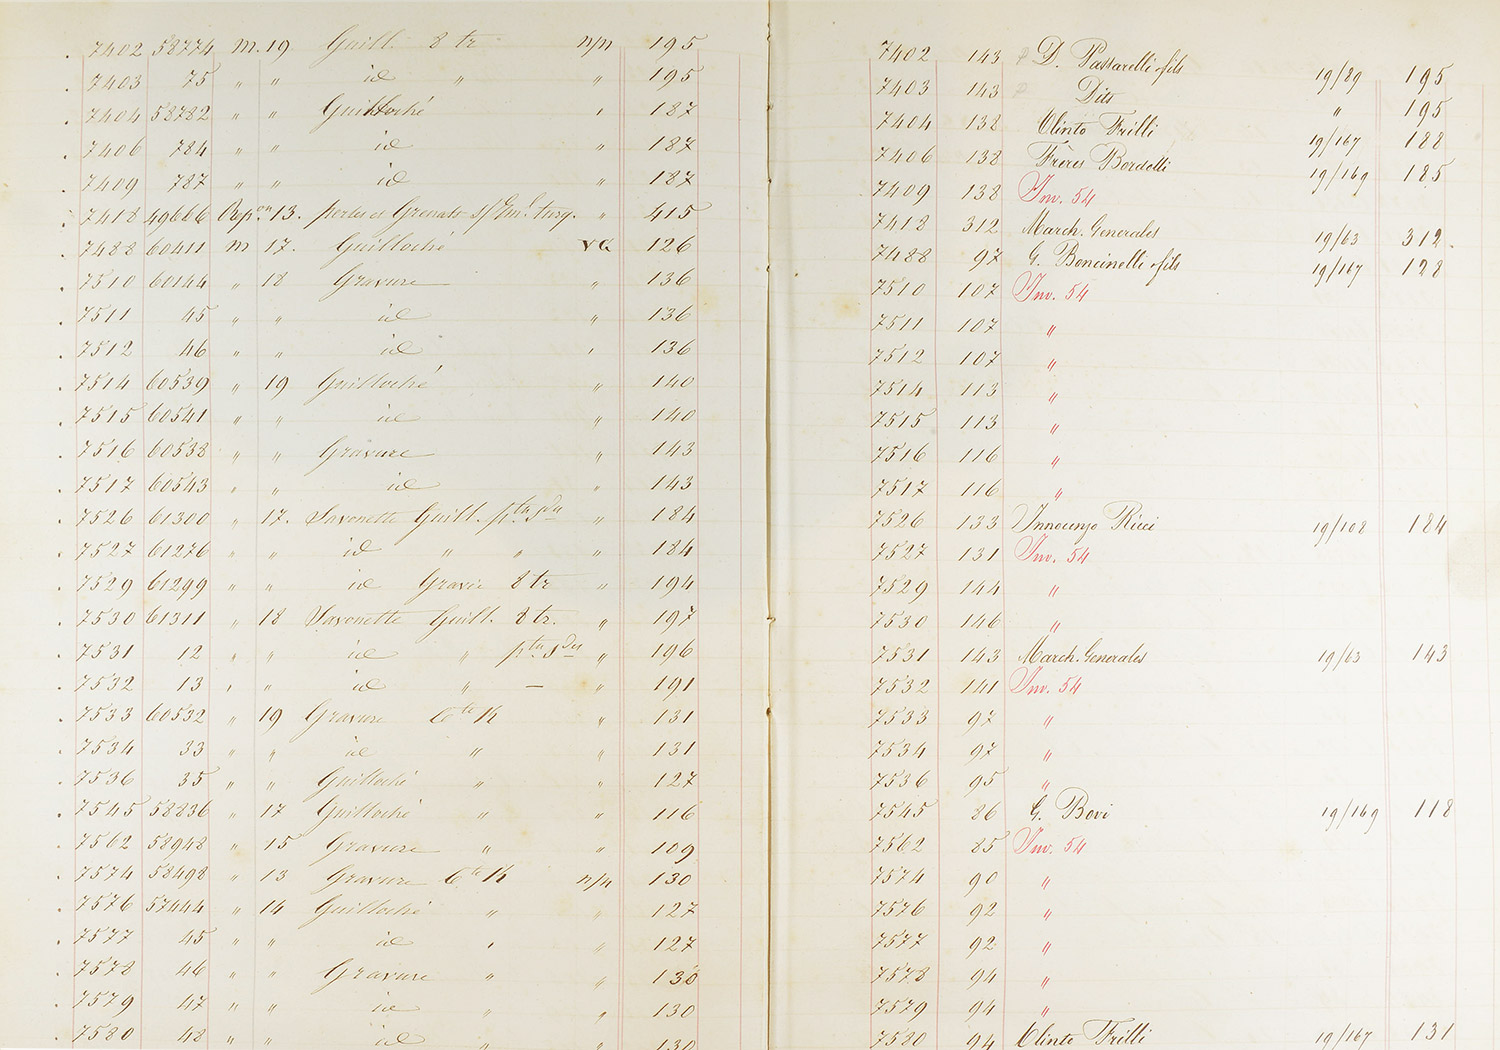 . 7402 58774 m. 19 Guill. 8 tr n/n 195
. 7403 75 " " id " " 195
. 7404 58782 " " Guilloché " 187
. 7406 784 " " id " 187
. 7409 787 " " id " 187
. 7418 49666 13. perles et Grenats " 415
. 7488 60411 m 17. Guilloché VG 126
. 7510 60144 " 18 Gravure " 136
. 7511 45 " " id " 136
. 7512 46 " " id " 136
. 7514 60539 " 19 Guilloché " 140
. 7515 60541 " " id " 140
. 7516 60538 " " Gravure " 143
. 7517 60543 " " id " 143
. 7526 61300 " 17. Savonette Guill. " 184
. 7527 61276 " " id " " " 184
. 7529 61299 " " id Gravée 8 tr " 194
. 7530 61311 " 18 Savonette Guill. 8 tr. " 197
. 7531 12 " " id " " 196
. 7532 13 " " id " — " 191
. 7533 60532 " 19 Gravure Cte K " 131
. 7534 33 " " id " " 131
. 7536 35 " " Guilloché " " 127
. 7545 58836 " 17 Guilloché " " 116
. 7562 58948 " 15 Gravure " " 109
. 7574 58498 " 13 Gravure Cte K n/n 130
. 7576 57444 " 14 Guilloché " " 127
. 7577 45 " " id " " 127
. 7578 46 " " Gravure " " 130
. 7579 47 " " id " " 130
. 7580 48 " " id " " 130
7402 143 D. Passarelli & fils 19/89 195
7403 143 Dits " 195
7404 138 Olinto Frilli 19/167 188
7406 138 Frères Bordelli 19/169 185
7409 138 Inv. 54
7418 312 March. Generales 19/63 312.
7488 97 G. Boncinelli & fils 19/167 128
7510 107 Inv. 54
7511 107 "
7512 107 "
7514 113 "
7515 113 "
7516 116 "
7517 116 "
7526 133 Innocenzo Ricci 19/108 184
7527 131 Inv. 54
7529 144 "
7530 146 "
7531 143 March. Generales 19/63 143
7532 141 Inv. 54
7533 97 "
7534 97 "
7536 95 "
7545 86 G. Bovi 19/169 118
7562 85 Inv. 54
7574 90 "
7576 92 "
7577 92 "
7578 94 "
7579 94 "
7580 94 Olinto Frilli 19/167 131